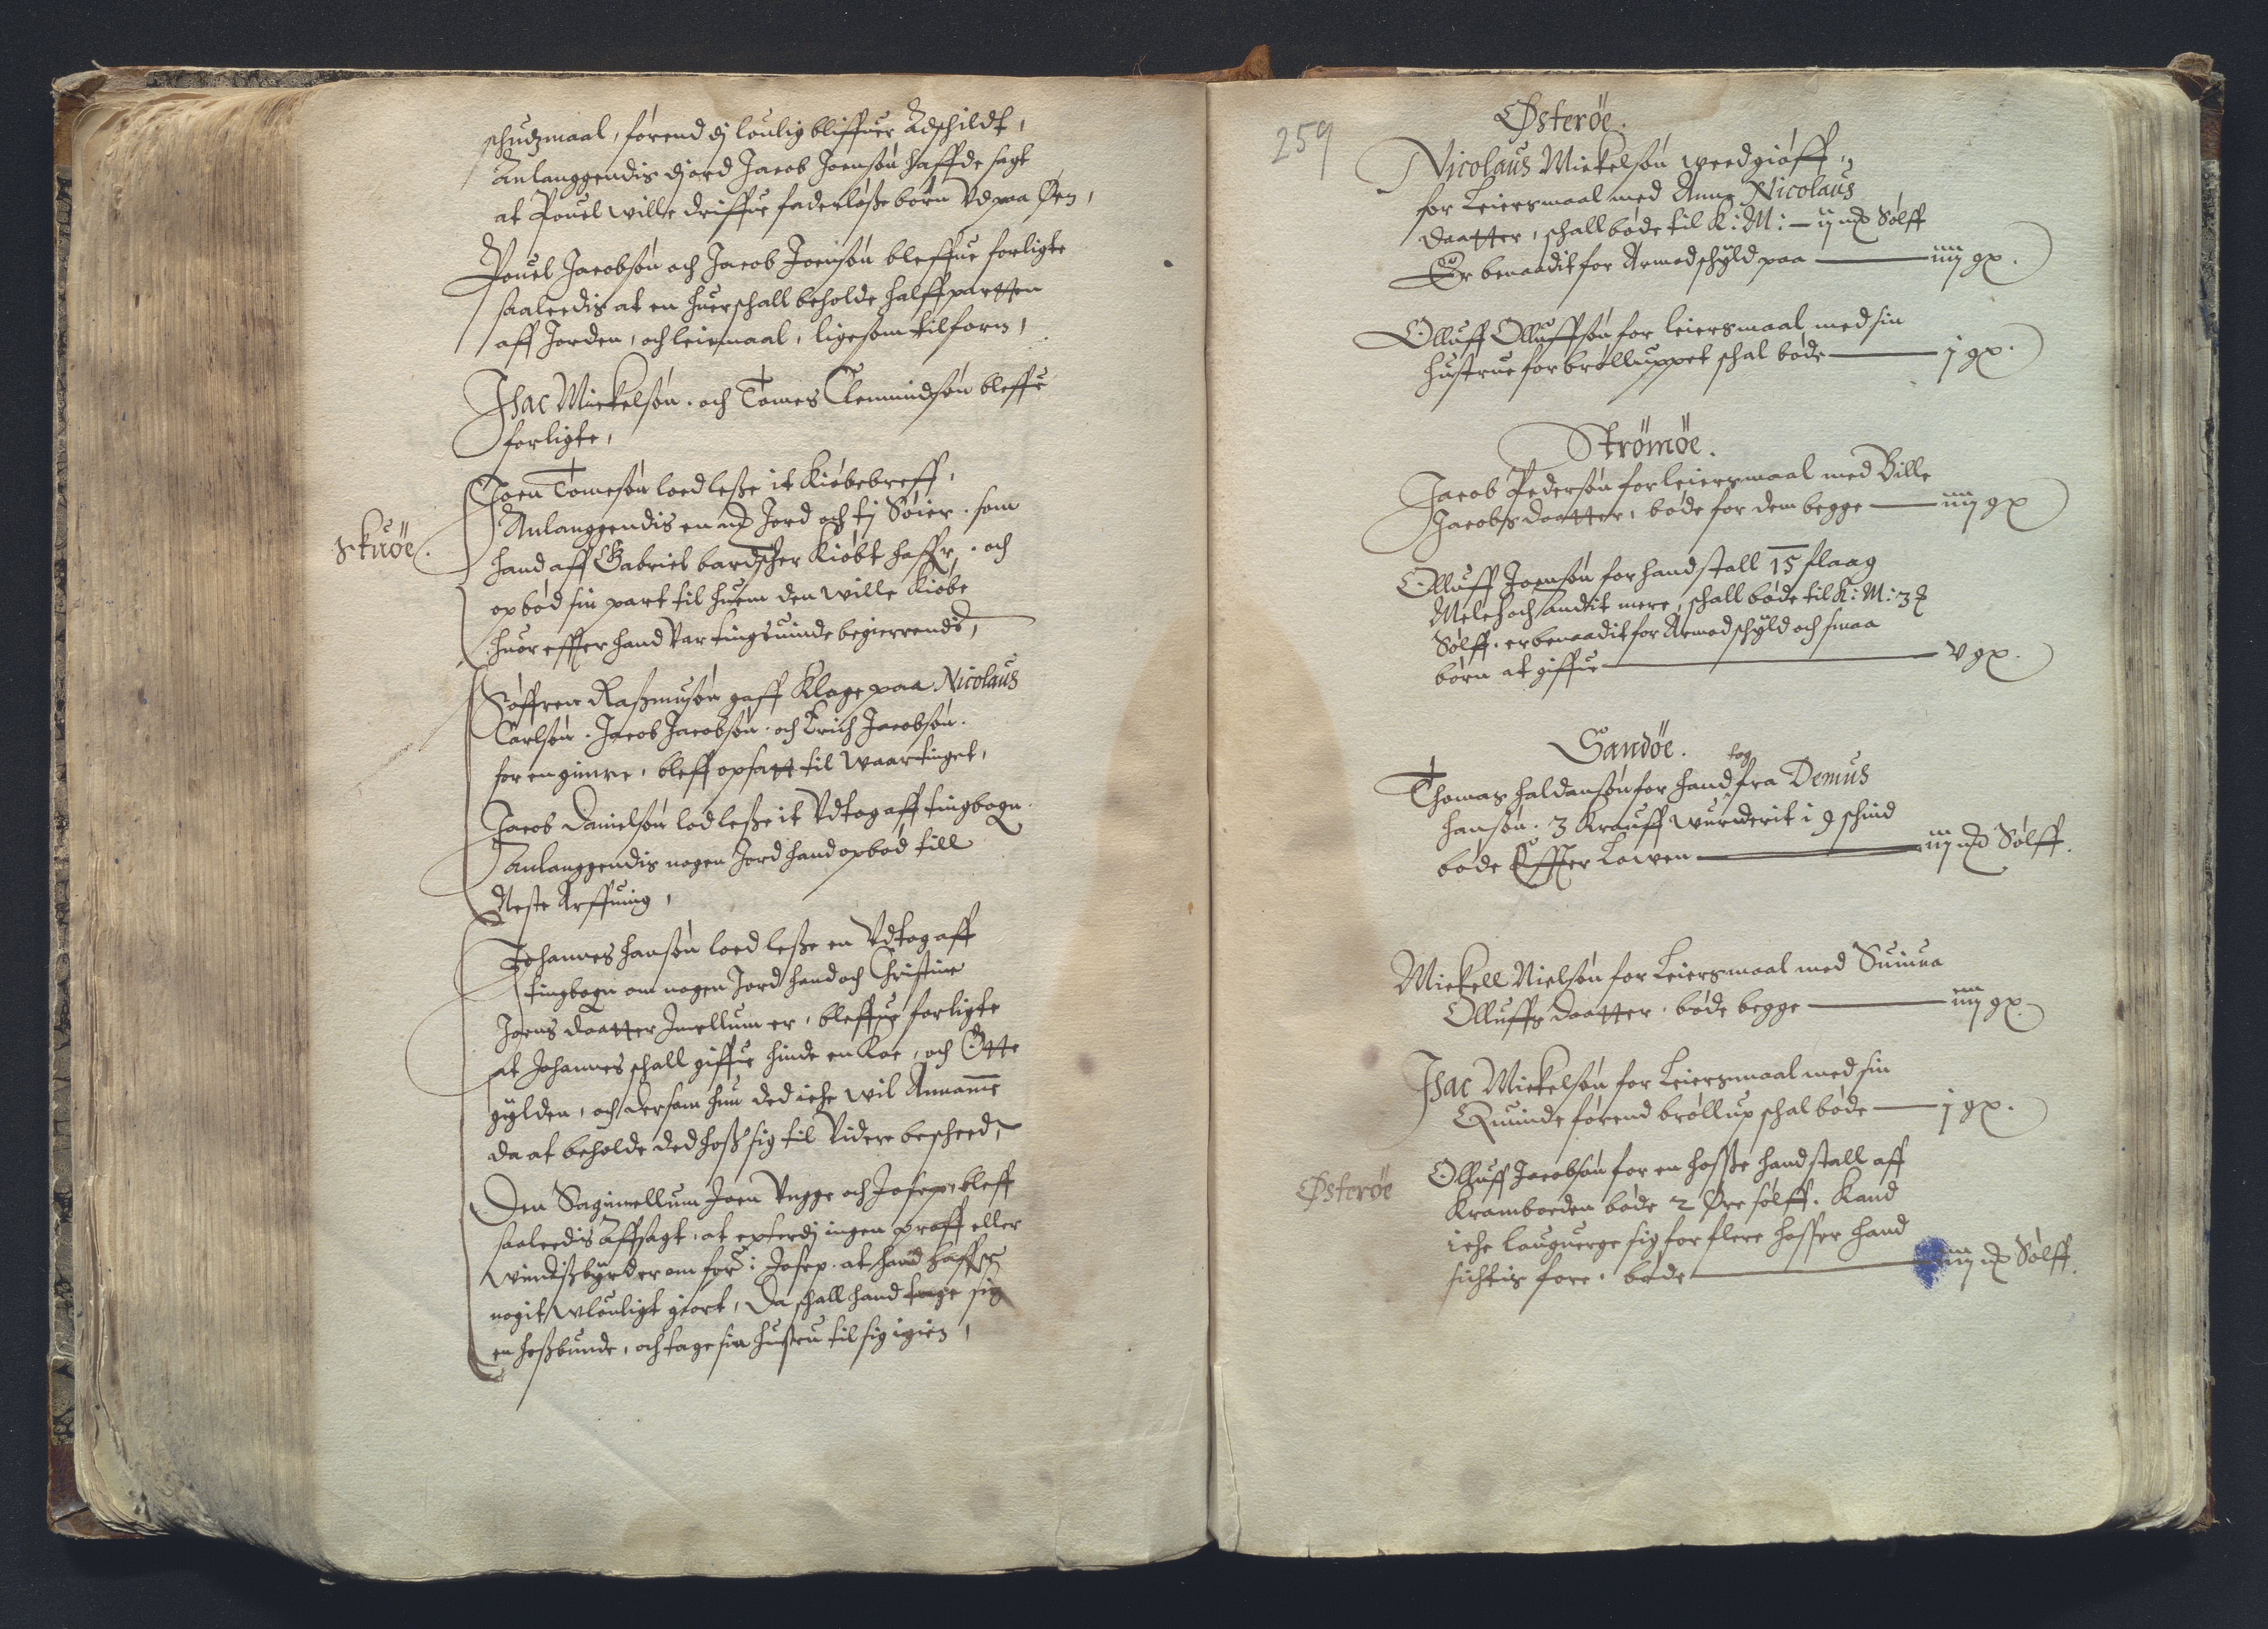 schudzmaal, førend dj loulig bliffuer Adschildt,
Anlanggendis dj ord Jacob Joensøn haffde sagt
at Pouel wille driffue faderløße børn Vd paa Øen,
Pouel Jacobsøn och Jacob Joensøn bleffue forligte
saaleedis at en huer schall beholde halffpartten
aff Jorden, och leiemaal, ligesom tilforn,
Isac Mickelsøn. och Tomes Clemmidsøn bleffue
forligte,
Skuöe.
Joen Tomesøn loed leße it Kiøbebreff,
Anlanggendis en mk Jord och tj Søier. som
hand aff Gabriel bardscher Kiøbt haffr. och
opbød sin part til huem den wille Kiøbe
huor effter hand Var tingsuinde begierrendis,
Søffren Raßmusøn gaff Klage paa Nicolaus
Carlsøn. Jacob Jacobsøn. och Erich Jacobsøn.
for en gimre, bleff opsatt til Waartinget,
Jacob Danielsøn lod leße it Vdtog aff tingbogn.
Anlanggendis nogen Jord hand opbød till
Neste Arffuing,
Johannes hansøn loed leße en Vdtog aff
tingbogn om nogen Jord hand och Christine
Joens daatter Imellum er, bleffue forligte
at Johannes schall giffue hinde en Koe, och Otte
gylden, och dersom hun ded iche wil Annamme
da at beholde ded hoß sig til Videre bescheed,
Den Sag imellum Joen Vngge och Josep, bleff
saaleedis Affsagt, at efterdj ingen proff eller
windißbyrd er om for: Josep. at hand haffr
nogit wlouligt giort, Da schall hand tage sig
en hoßbunde, och tage sin hustru til sig igien,
259
Østeröe.
Nicolaus Mickelsøn weedgiøff
for Leiersmaal med Anne Nicolaus
daatter, schall bøde til K: M: — ij mk Sølff
Er benaadit for Armod schyld paa — iiij gx.
Olluff Olluffsøn for leiersmaal med sin
hustrue for brølluppet schal bøde — j gx.
Strömöe.
Jacob Pedersøn for leiersmaal med Bille
Jacobs daatter, bøde for dem begge — iiij gx
Olluff Joensøn for handstall 15 flaag
Melch och andit mere, schall bøde til K: M: 3 mk
Sølff. er benaadit for Armod schyld och smaa
børn at giffue — v gx.
Sandöe.
Thomas haldansøn for hand tog fra Demus
hansøn. 3 Krauff wurderit i 9 schind
bøde Effter Lowen — iij mk Sølff.
Mickell Nielsøn for Leiersmaal med Suinua
Olluffs daatter. bøde begge — iiij gx.
Isac Mickelsøn for Leiersmaal med sin
Quinde førend brøllup schal bøde — j gx.
Østeröe
Olluff Jacobsøn for en hosße hand stall aff
Kramboeden bøde 2 Øre sølff. Kand
iche lauguerge sig for flere hosser hand
sichtis fore. bøde — iiij mk Sølff.